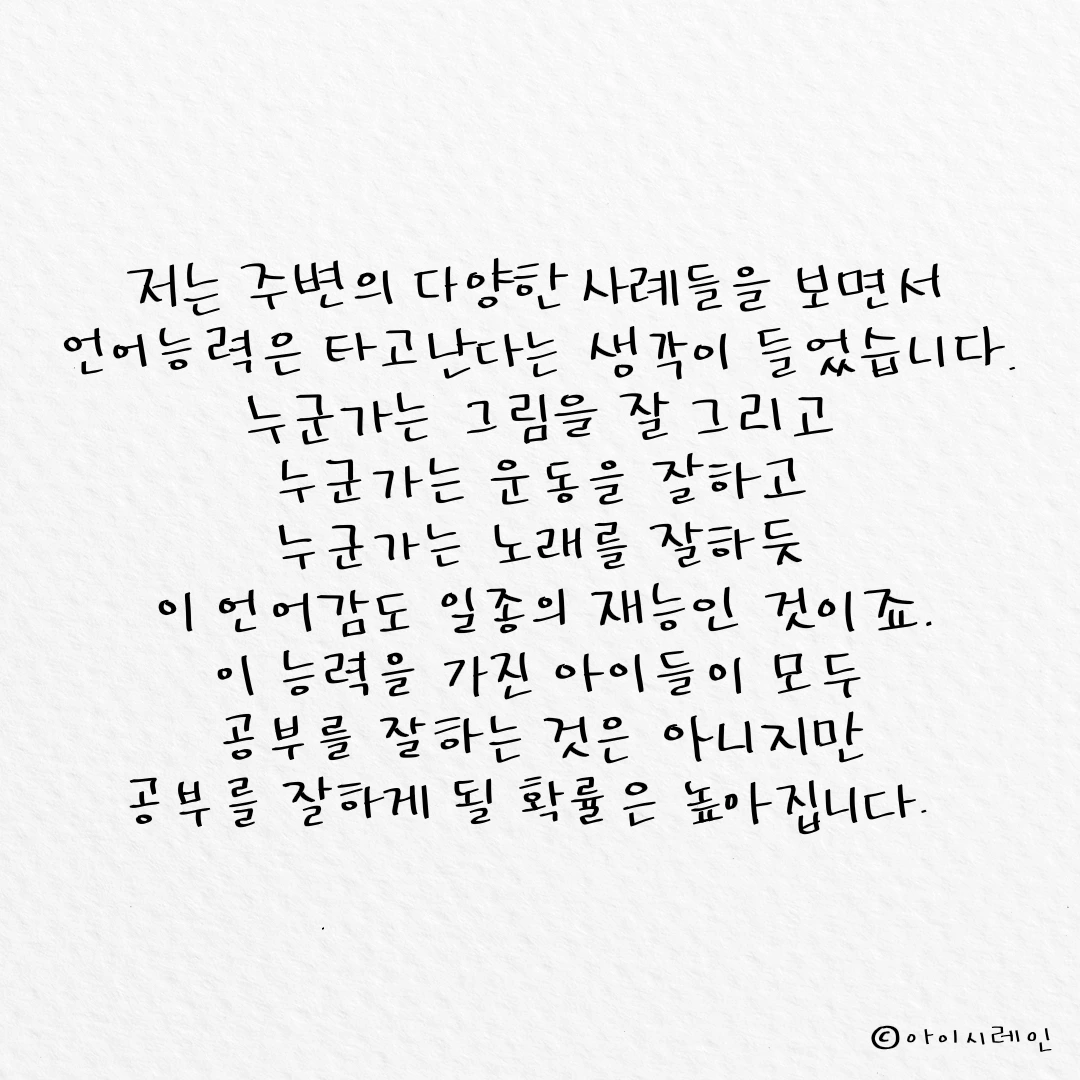 저는 주변의 다양한 사례들을 보면서
언어능력은 타고난다는 생각이 들었습니다.
누군가는 그림을 잘 그리고
누군가는 운동을 잘하고
누군가는 노래를 잘하듯
이 언어감도 일종의 재능인 것이죠.
이 능력을 가진 아이들이 모두
공부를 잘하는 것은 아니지만
공부를 잘하게 될 확률은 높아집니다.
©아이시레인